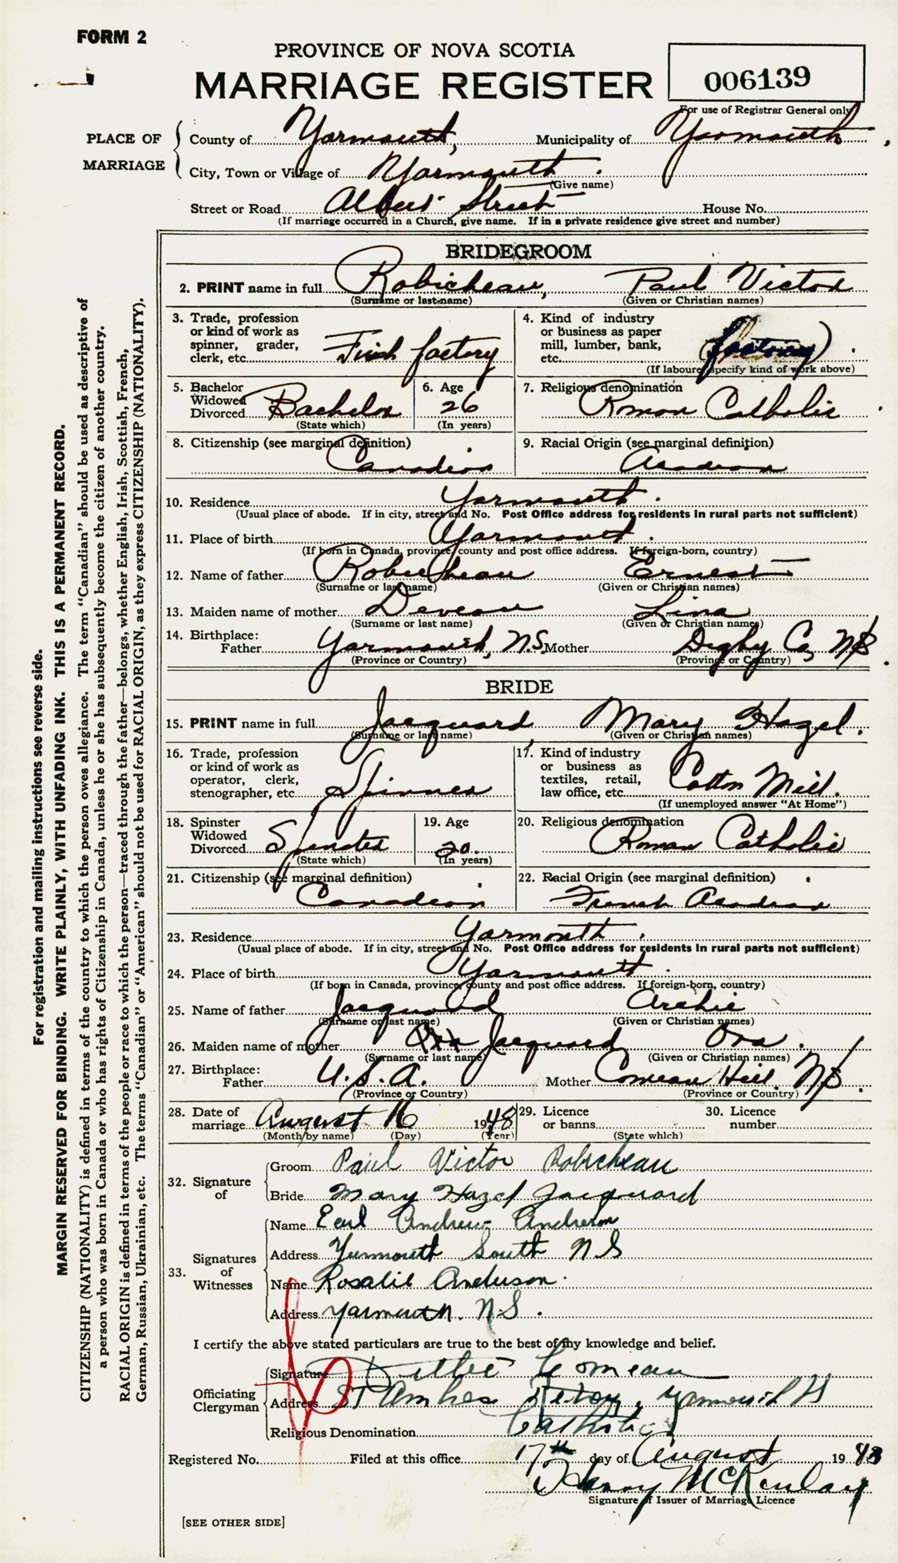 FORM 2
PROVINCE OF NOVA SCOTIA
MARRIAGE REGISTER
006139
For use of Registrar General only
PLACE OF MARRIAGE
County of Yarmouth, Municipality of Yarmouth
City, Town or Village of Yarmouth.
(Give name)
Street or Road Albert Street House No.
(If marriage occurred in a Church, give name. If in a private residence give street and number)
BRIDEGROOM
2. PRINT name in full Robicheau, Paul Victor
(Surname or last name) (Given or Christian names)
3. Trade, profession or kind of work as spinner, grader, clerk, etc. Fish factory
4. Kind of industry or business as paper mill, lumber, bank, etc. (factory)
(If labourer specify kind of work above)
5. Bachelor Widowed Divorced Bachelor
(State which)
6. Age 26
(In years)
7. Religious denomination Roman Catholic
8. Citizenship (see marginal definition) Canadian
9. Racial Origin (see marginal definition) Acadian
10. Residence Yarmouth.
(Usual place of abode. If in city, street and No. Post Office address for residents in rural parts not sufficient)
11. Place of birth Yarmouth.
(If born in Canada, province, county and post office address. If foreign-born, country)
12. Name of father Robicheau Ernest
(Surname or last name) (Given or Christian names)
13. Maiden name of mother Deveau Lina
(Surname or last name) (Given or Christian names)
14. Birthplace: Father Yarmouth, N.S. Mother Digby Co, NS.
(Province or Country) (Province or Country)
BRIDE
15. PRINT name in full Jacquard, Mary Hazel.
(Surname or last name) (Given or Christian names)
16. Trade, profession or kind of work as operator, clerk, stenographer, etc. Spinner
17. Kind of industry or business as textiles, retail, law office, etc. Cotton Mill.
(If unemployed answer "At Home")
18. Spinster Widowed Divorced Spinster
(State which)
19. Age 20.
(In years)
20. Religious denomination Roman Catholic
21. Citizenship (see marginal definition) Canadian
22. Racial Origin (see marginal definition) French Acadian
23. Residence Yarmouth.
(Usual place of abode. If in city, street and No. Post Office address for residents in rural parts not sufficient)
24. Place of birth Yarmouth.
(If born in Canada, province, county and post office address. If foreign-born, country)
25. Name of father Jacquard Archie
(Surname or last name) (Given or Christian names)
26. Maiden name of mother Jacquard Ora.
(Surname or last name) (Given or Christian names)
27. Birthplace: Father U.S.A. Mother Comeau Hill, NS.
(Province or Country) (Province or Country)
28. Date of marriage August 16 1948
(Month by name) (Day) (Year)
29. Licence or banns
(State which)
30. Licence number
32. Signature of
Groom Paul Victor Robicheau
Bride Mary Hazel Jacquard
33. Signatures of Witnesses
Name Earl Andrew Anderson
Address Yarmouth South N S
Name Rosalie Anderson.
Address Yarmouth. N.S.
I certify the above stated particulars are true to the best of my knowledge and belief.
Officiating Clergyman
Signature Comeau
Address St Ambrose Yarmouth
Religious Denomination Catholic
Registered No. Filed at this office 17th day of August 1948
Henry McKinlay
Signature of Issuer of Marriage Licence
[SEE OTHER SIDE]
For registration and mailing instructions see reverse side.
MARGIN RESERVED FOR BINDING. WRITE PLAINLY, WITH UNFADING INK. THIS IS A PERMANENT RECORD.
CITIZENSHIP (NATIONALITY) is defined in terms of the country to which the person owes allegiance. The term "Canadian" should be used as descriptive of
a person who was born in Canada or who has rights of Citizenship in Canada, unless he or she has subsequently become the citizen of another country.
RACIAL ORIGIN is defined in terms of the people or race to which the person—traced through the father—belongs, whether English, Irish, Scottish, French,
German, Russian, Ukrainian, etc. The terms "Canadian" or "American" should not be used for RACIAL ORIGIN, as they express CITIZENSHIP (NATIONALITY).